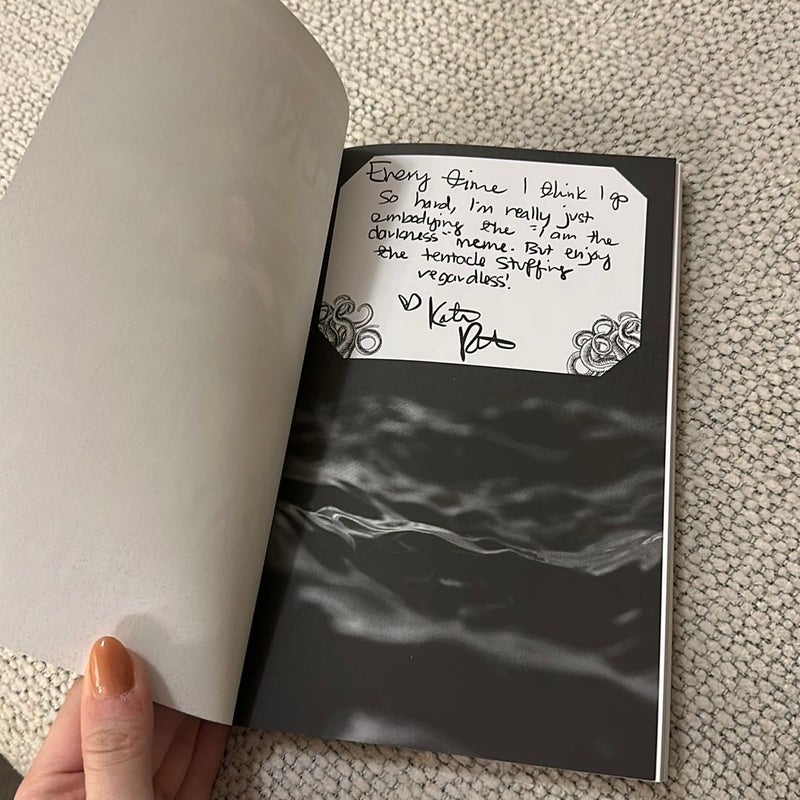 Every time I think I go
so hard, I'm really just
embodying the "I am the
darkness" meme. But enjoy
the tentacle stuffing
regardless!
♡ Katee